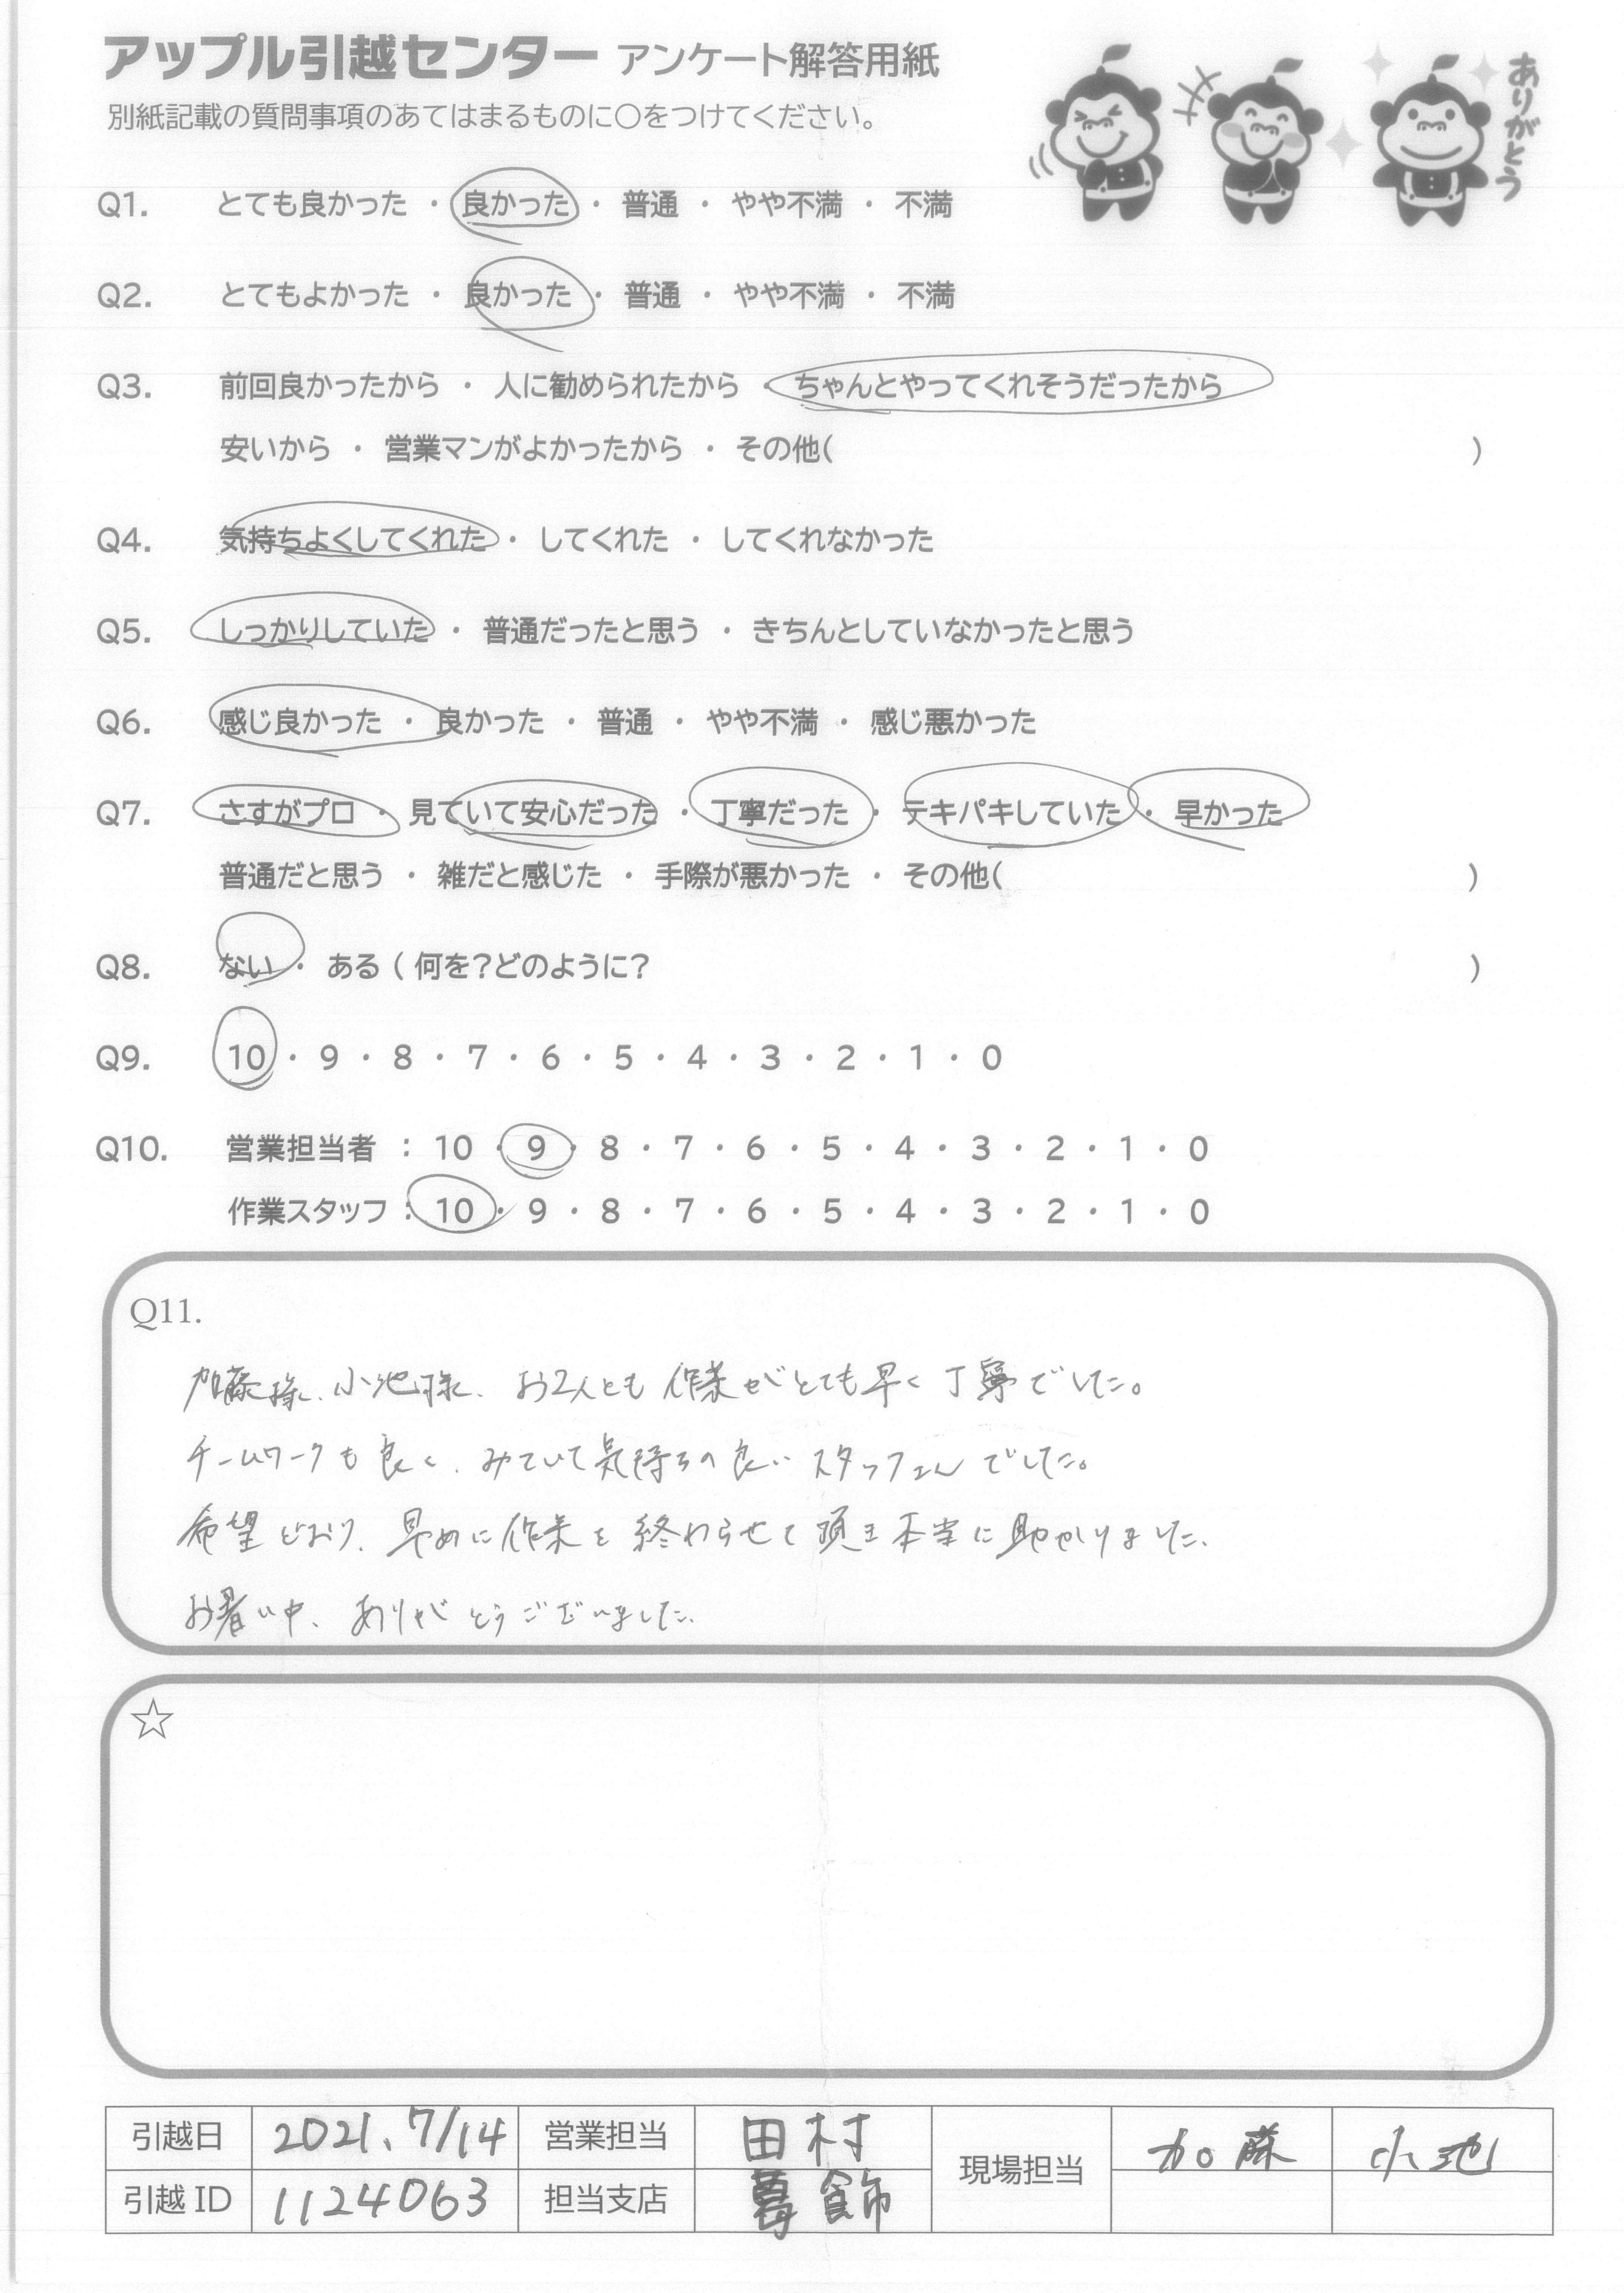 アップル引越センター アンケート解答用紙
別紙記載の質問事項のあてはまるものに〇をつけてください。
ありがとう
Q1. とても良かった ・ 良かった ・ 普通 ・ やや不満 ・ 不満
Q2. とてもよかった ・ 良かった ・ 普通 ・ やや不満 ・ 不満
Q3. 前回良かったから ・ 人に勧められたから ・ ちゃんとやってくれそうだったから
安いから ・ 営業マンがよかったから ・ その他( )
Q4. 気持ちよくしてくれた ・ してくれた ・ してくれなかった
Q5. しっかりしていた ・ 普通だったと思う ・ きちんとしていなかったと思う
Q6. 感じ良かった ・ 良かった ・ 普通 ・ やや不満 ・ 感じ悪かった
Q7. さすがプロ ・ 見ていて安心だった ・ 丁寧だった ・ テキパキしていた ・ 早かった
普通だと思う ・ 雑だと感じた ・ 手際が悪かった ・ その他( )
Q8. ない ・ ある ( 何を?どのように? )
Q9. 10 ・ 9 ・ 8 ・ 7 ・ 6 ・ 5 ・ 4 ・ 3 ・ 2 ・ 1 ・ 0
Q10. 営業担当者 : 10 ・ 9 ・ 8 ・ 7 ・ 6 ・ 5 ・ 4 ・ 3 ・ 2 ・ 1 ・ 0
作業スタッフ : 10 ・ 9 ・ 8 ・ 7 ・ 6 ・ 5 ・ 4 ・ 3 ・ 2 ・ 1 ・ 0
Q11.
加藤様、小池様、お2人とも作業がとても早く丁寧でした。
チームワークも良く、みていて気持ちの良いスタッフさんでした。
希望どおり、早めに作業を終わらせて頂き本当に助かりました。
お暑い中、ありがとうございました。
☆
引越日 2021、7/14 営業担当 田村 現場担当 加藤 小池
引越 ID 1124063 担当支店 葛飾